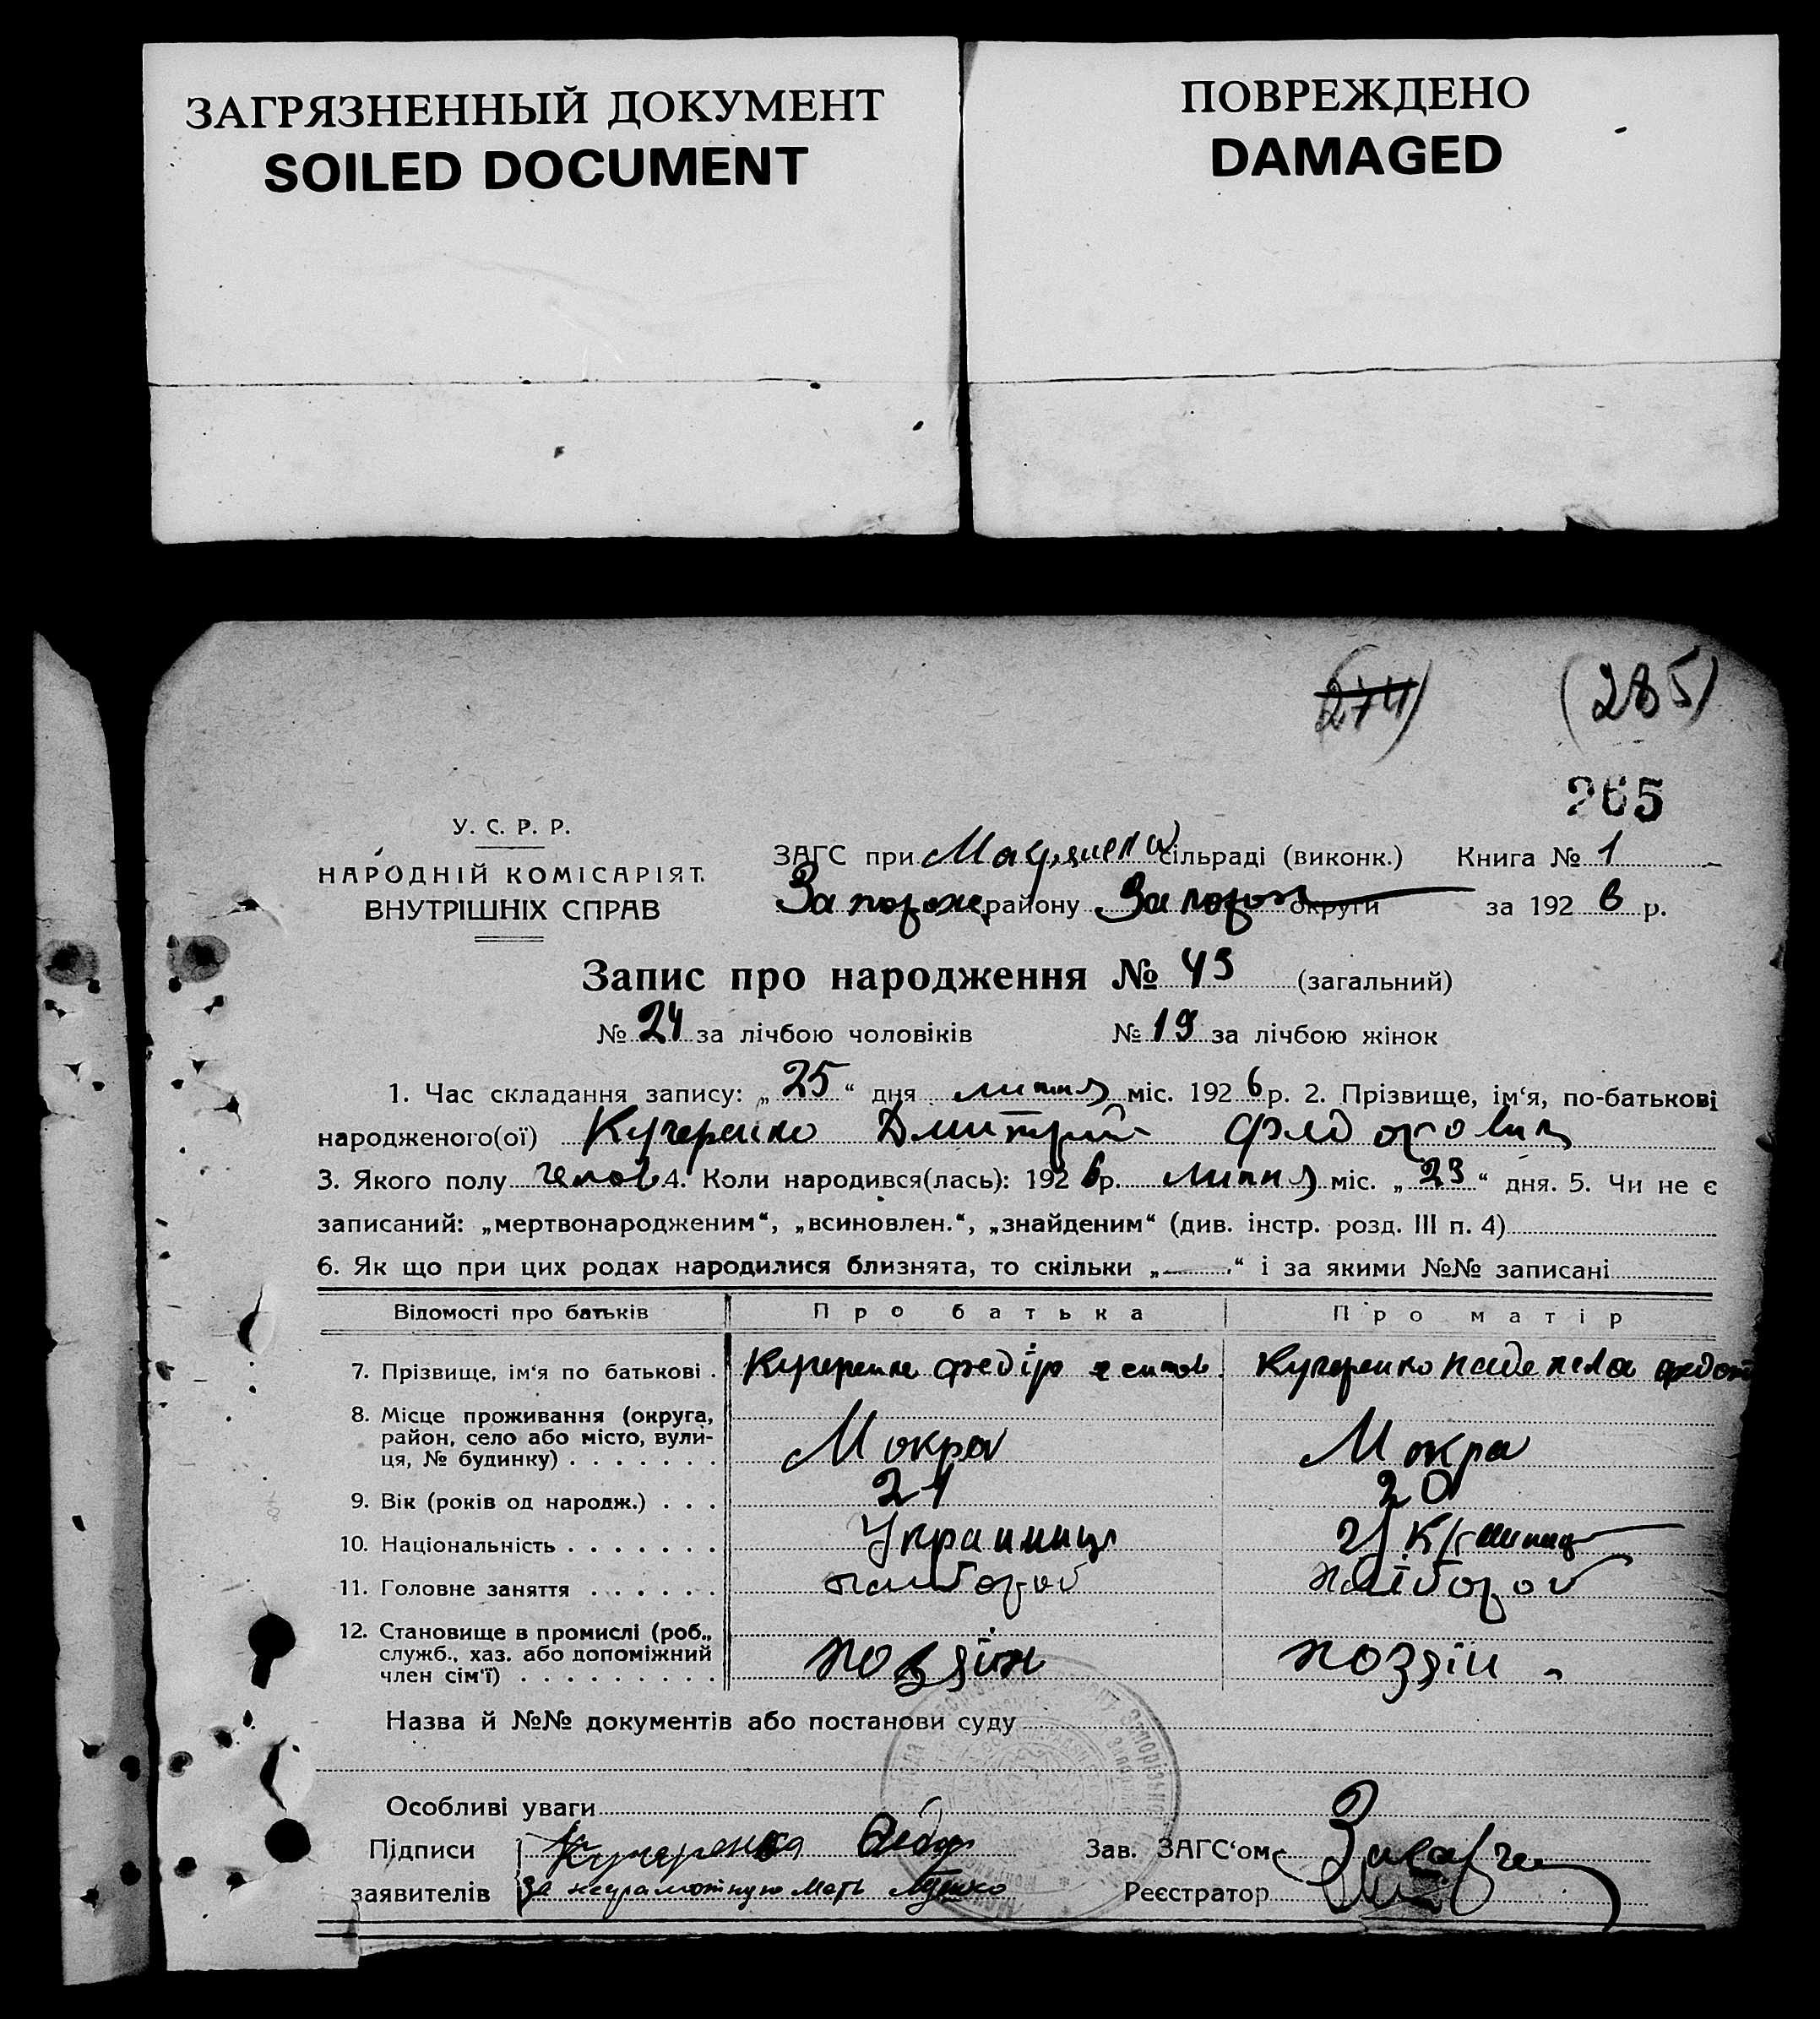 ЗАГРЯЗНЕННЫЙ ДОКУМЕНТ
SOILED DOCUMENT
ПОВРЕЖДЕНО
DAMAGED
(274) (285)
265
У. С. Р. Р.
НАРОДНІЙ КОМІСАРІЯТ
ВНУТРІШНІХ СПРАВ
ЗАГС при сільраді (виконк.) Книга № 1
Запорож району Запорож округи за 1926 р.
Запис про народження № 43 (загальний)
№ 24 за лічбою чоловіків № 19 за лічбою жінок
1. Час складання запису: „25“ дня липня міс. 1926 р. 2. Прізвище, ім‘я, по-батькові
народженого(ої) Кучеренко Дмитрий Федорович
3. Якого полу челов 4. Коли народився(лась): 1926 р. липня міс. „23“ дня. 5. Чи не є
записаний: „мертвонародженим“, „всиновлен.“, „знайденим“ (див. інстр. розд. III п. 4)
6. Як що при цих родах народилися близнята, то скільки „—“ і за якими №№ записані
Відомості про батьків Про батька Про матір
7. Прізвище, ім‘я по батькові . Кучеренко Федір Кучеренко
8. Місце проживання (округа,
район, село або місто, вули-
ця, № будинку) . . . . . . . Мокра Мокра
9. Вік (років од народж.) . . . 21 20
10. Національність . . . . . . . Украинец
11. Головне заняття . . . . . . хлібороб хлібороб
12. Становище в промислі (роб.,
служб., хаз. або допоміжний
член сім‘ї) . . . . . . . . . хозяїн хозяїн
Назва й №№ документів або постанови суду
Особливі уваги
Підписи Кучеренко Федор Зав. ЗАГС‘ом
заявителів За неграмотную мать Реєстратор